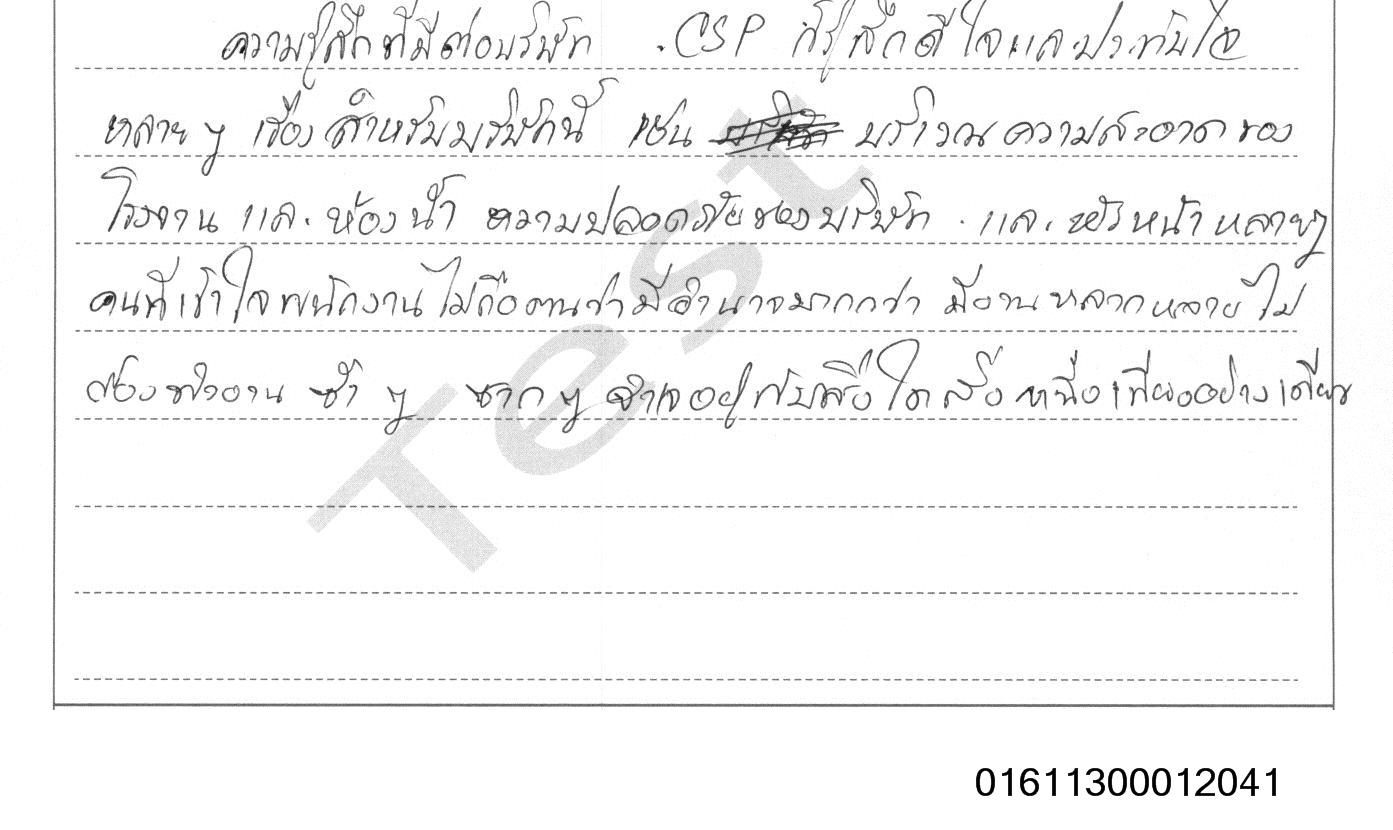 ความรู้สึกที่มีต่อบริษัท . CSP ก็รู้สึกดีใจและประทับใจ
หลาย ๆ เรื่องสำหรับบริษัทนี้ เช่น บริเวณความสะอาดของ
โรงงาน และห้องน้ำ ความปลอดภัยของบริษัท . และหัวหน้าหลายๆ
คนที่เข้าใจพนักงานไม่ถือตนว่ามีอำนาจมากกว่า มีงานหลากหลายไม่
ต้องทำงาน ซ้ำ ๆ ซาก ๆ จำเจอยู่กับสิ่งใดสิ่งหนึ่งเพียงอย่างเดียว
Test
01611300012041